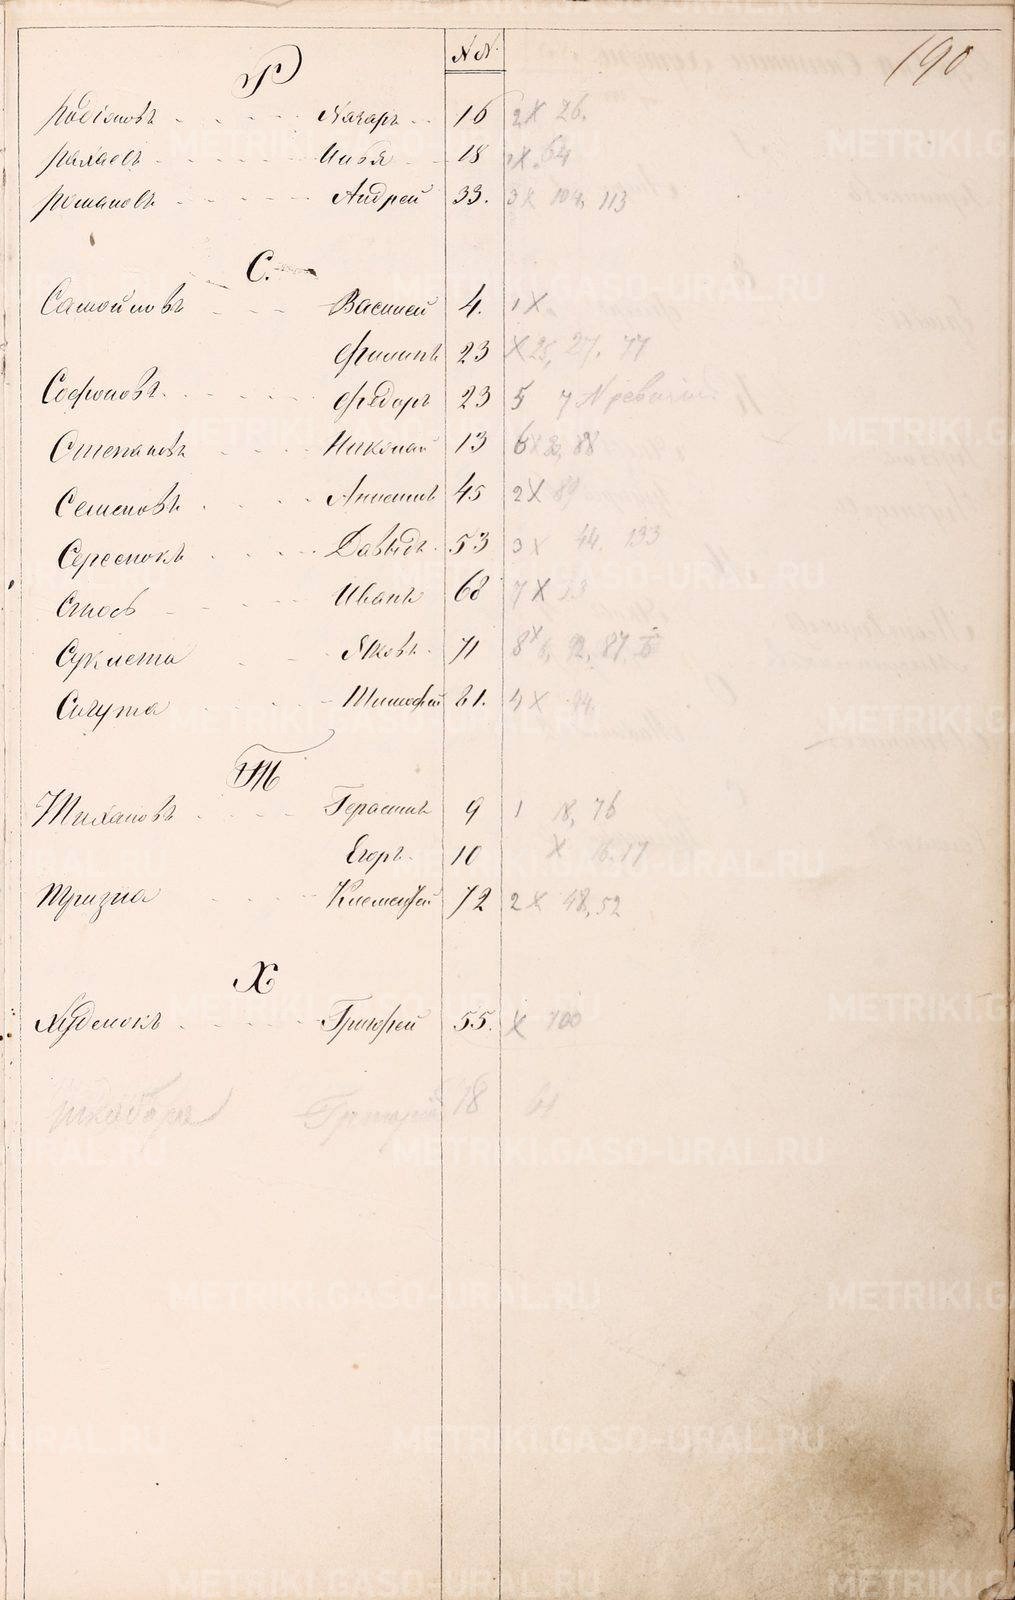 190
N N.
Р
Родіоновъ Захаръ 16 2 X 26.
Рахаевъ Илья 18 1 X. 64
Романовъ Андрей 33. 3 X 104, 113
С.
Самойловъ Василей 4. 1 X
Филипъ 23 X 25, 27, 77
Софроновъ Федоръ 23 5 7
Степановъ Николай 13 6 X 88
Семеновъ 45 2 X 89
Давыдъ 53 3 X 44, 133
Иванъ 68 7 X 33
Суклета Яковъ 71 8 X 92, 87,
Сигута Тимофей 81. 4 X 94.
Т
Тихановъ Герасимъ 9 1 18, 76
Егоръ 10 X 16, 17
Тризна Климентей 72 2 X 48, 52
Х
Худенокъ Григорей 55. X 100
Григорей 18 61
METRIKI.GASO-URAL.RU